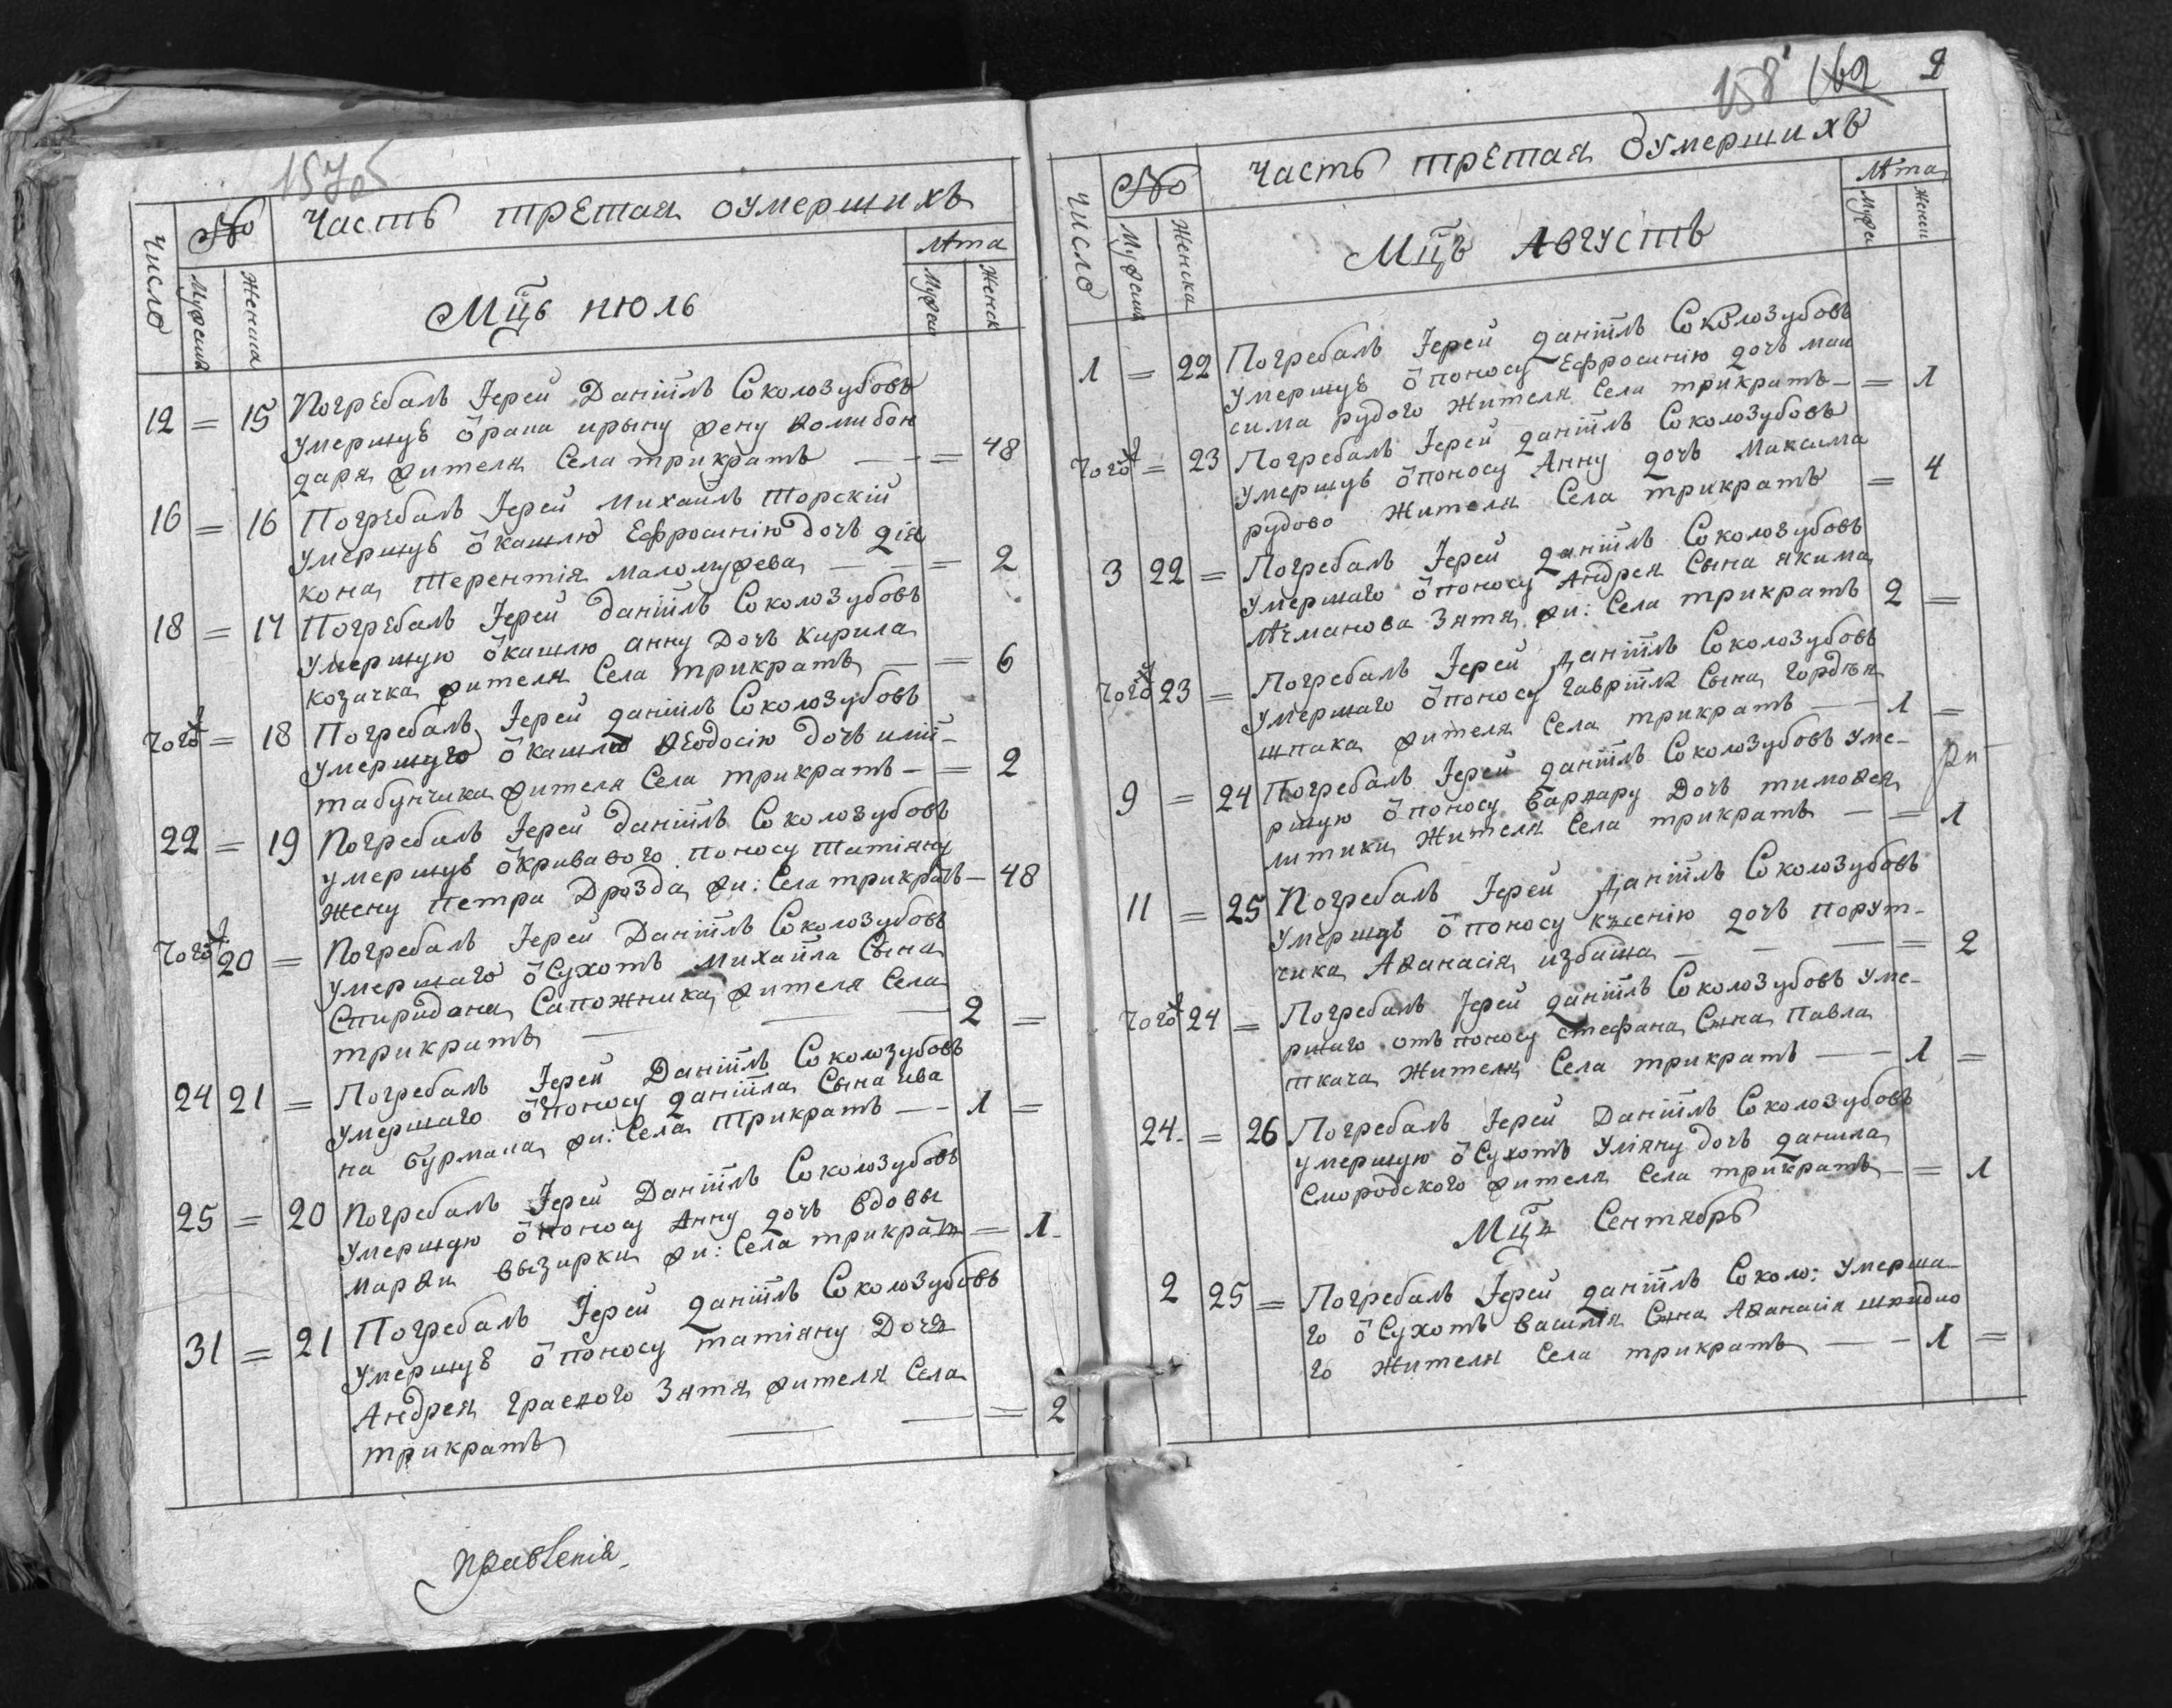 157об
Число № Часть третая оумершихъ
Мужеска Женска Мцъ июль Лѣта Мужеск Женск
12 = 15 Погребалъ Іерей Даніилъ Соколозубовъ
умершуѣ ѿ рана ирыну жену
даря жителя Села трикратъ — — = 48
16 = 16 Погребалъ Іерей Михаилъ Торскій
умершуѣ ѿ кашлю Ефросинію дочъ діа
кона Терентія Маломужева — — = 2
18 = 17 Погребалъ Іерей даніилъ Соколозубовъ
умершую ѿ кашлю анну дочъ Кирила
козачка жителя Села трикратъ — = 6
Тогож = 18 Погребалъ Іерей даніилъ Соколозубовъ
умершую ѿ кашлю Ѳеодосію дочъ
табунчика жителя Села трикратъ — = 2
22 = 19 Погребалъ Іерей даніилъ Соколозубовъ
умершуѣ ѿ кривавого поносу Татіяну
жену Петра Дрозда жи: Села трикратъ — 48
Тогож 20 = Погребалъ Іерей Даніилъ Соколозубовъ
умершаго ѿ Сухотъ Михаила Сына
Спиридона Сапожника жителя Села
трикратъ — — — 2 =
24 21 = Погребалъ Іерей Даніилъ Соколозубовъ
умершаго ѿ поносу даніила Сына ива
на бурмана жи: Села трикратъ — — 1 =
25 = 20 Погребалъ Іерей Даніилъ Соколозубовъ
умершую ѿ поносу Анну дочъ вдовы
Марѳи вызирки жи: Села трикратъ = 1
31 = 21 Погребалъ Іерей даніилъ Соколозубовъ
умершуѣ ѿ поносу татіяну Дочъ
Андрея граекого Зятя жителя Села
трикратъ — — = 2
правленія
158 162 2
Число № Часть третая оумершихъ
Мужеск Женска Мцъ Августъ Лѣта Мужес Женск
1 = 22 Погребалъ Іерей даніилъ Соколозубовъ
умершуѣ ѿ поносу Ефросинію дочъ мак
сима рудого жителя Села трикратъ — = 1
Тогож = 23 Погребалъ Іерей даніилъ Соколозубовъ
умершуѣ ѿ поносу Анну дочъ Максима
рудово жителя Села трикратъ = 4
3 22 = Погребалъ Іерей даніилъ Соколозубовъ
умершаго ѿ поносу Андрея Сына якима
Лѣчманова Зятя жи: Села трикратъ 2 =
Тогож 23 = Погребалъ Іерей Даніилъ Соколозубовъ
умершаго ѿ поносу гавріила Сына гордѣя
шпака жителя Села трикратъ — — 1 =
9 = 24 Погребалъ Іерей даніилъ Соколозубовъ уме-
ршую ѿ поносу варвару Дочъ тимоѳея
литики жителя Села трикратъ — = 1
11 = 25 Погребалъ Іерей Даніилъ Соколозубовъ
умершуѣ ѿ поносу ксенію дочъ порут-
чика Аѳанасія избаша — — — = 2
Тогож 24 = Погребалъ Іерей даніилъ Соколозубовъ уме-
ршаго отъ поносу стефана Сына Павла
ткача жителя Села трикратъ — — 1 =
24. = 26 Погребалъ Іерей Даніилъ Соколозубовъ
умершую ѿ Сухотъ Уліяну дочъ данила
Смородского жителя Села трикратъ — = 1
Мца Сентябрь
2 25 = Погребалъ Іерей даніилъ Соколо: умерша
го ѿ Сухотъ василія Сына Аѳанасія
го жителя Села трикратъ — — 1 =